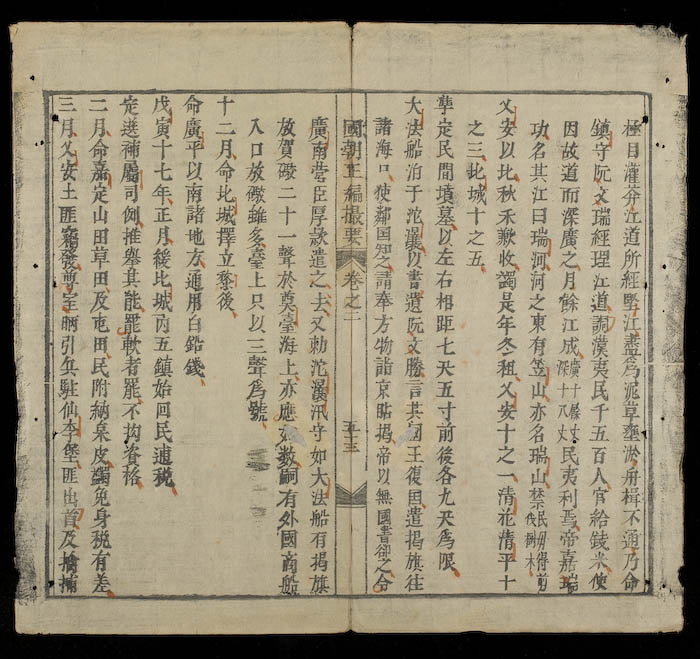 極目灌莽江道所經堅江盡為泥草壅淤舟楫不通乃命
鎮守阮文瑞經理江道調漢夷民千五百人官給錢米使
因故道而深廣之月餘江成廣十餘丈深十八丈民夷利焉帝嘉瑞
功名其江曰瑞河河之東有笠山亦名瑞山禁民毋得剪伐樹木
乂安以比秋禾歉收蠲是年冬租乂安十之一清花清平十
之三北城十之五
定民間墳墓以左右相距七尺五寸前後各九尺為限
大法船泊于沱㶞以書遺阮文勝言其國王復國遣揭旗往
諸海口使鄰國知之請奉方物詣京瞻揭帝以無國書卻之令
國朝正編撮要 卷之二 五十三
廣南營臣厚款遣之去又勅沱㶞汛守如大法船有揭旗
放賀礮二十一聲於奠臺海上亦應如數嗣有外國商船
入口放礮雖多臺上只以三聲為號
十二月命北城擇立黎後
命廣平以南諸地方通用白鉛錢
戊寅十七年正月緩北城內五鎮始回民逋稅
定選補屬司例推舉其能罷軟者罷不拘資格
二月命嘉定山田草田及屯田民附納泉皮蠲免身稅有差
三月乂安土匪竊發引兵駐仙李堡匪出首及擒捕